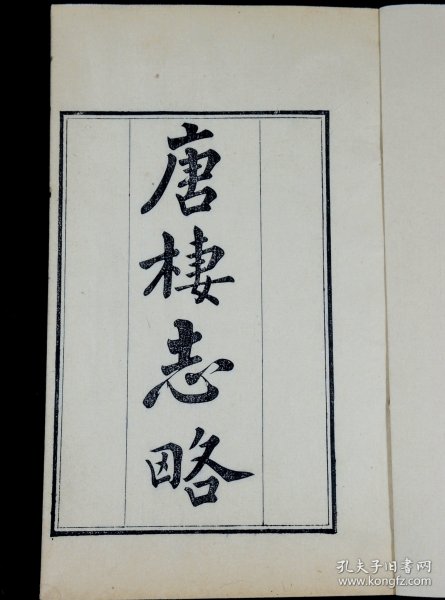 唐棲志略
孔夫子旧书网
www.kongfz.com